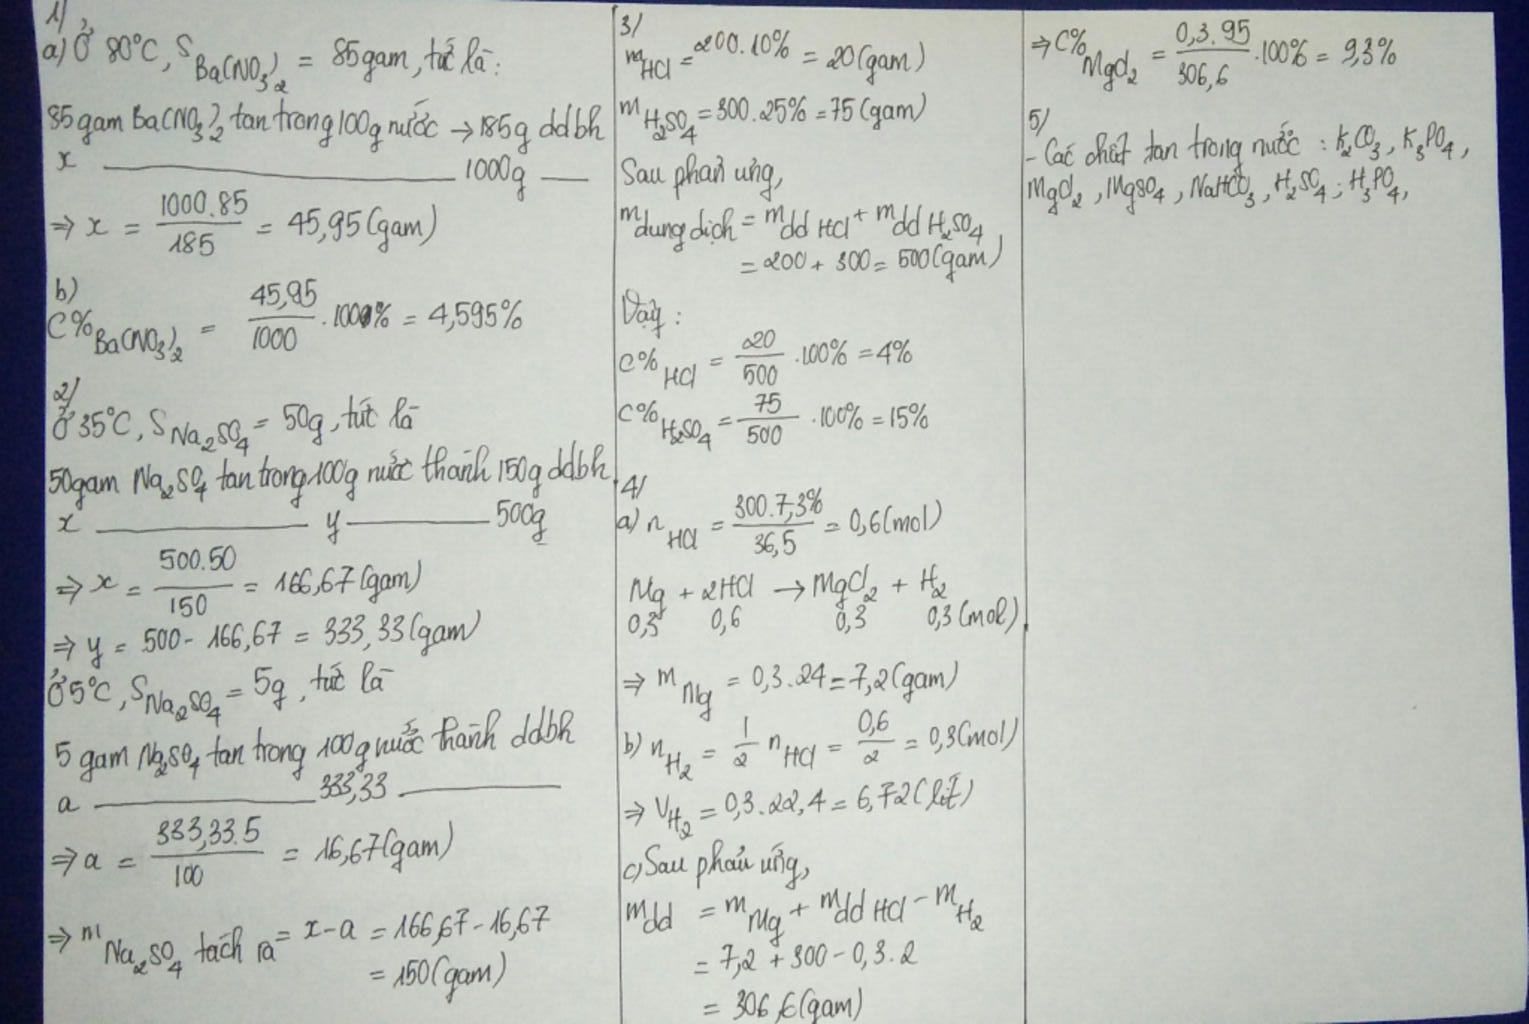 1/
a) Ở 80°C, S Ba(NO₃)₂ = 85 gam, tức là:
85 gam Ba(NO₃)₂ tan trong 100g nước → 185g ddbh
x ——— 1000g —
⇒ x = 1000.85 / 185 = 45,95 (gam)
b)
C% Ba(NO₃)₂ = 45,95 / 1000 . 100% = 4,595%
2/
Ở 35°C, S Na₂SO₄ = 50g, tức là
50gam Na₂SO₄ tan trong 100g nước thành 150g ddbh
x ——— y ——— 500g
⇒ x = 500.50 / 150 = 166,67 (gam)
⇒ y = 500 - 166,67 = 333,33 (gam)
Ở 5°C, S Na₂SO₄ = 5g, tức là
5 gam Na₂SO₄ tan trong 100g nước thành ddbh
a ——— 333,33 ———
⇒ a = 333,33.5 / 100 = 16,67 (gam)
⇒ m Na₂SO₄ tách ra = x - a = 166,67 - 16,67
= 150 (gam)
3/
m HCl = 200.10% = 20 (gam)
m H₂SO₄ = 300.25% = 75 (gam)
Sau phản ứng,
m dung dịch = m dd HCl + m dd H₂SO₄
= 200 + 300 = 500 (gam)
Vậy:
C% HCl = 20 / 500 . 100% = 4%
C% H₂SO₄ = 75 / 500 . 100% = 15%
4/
a) n HCl = 300.7,3% / 36,5 = 0,6 (mol)
Mg + 2HCl → MgCl₂ + H₂
0,3 0,6 0,3 0,3 (mol)
⇒ m Mg = 0,3.24 = 7,2 (gam)
b) n H₂ = 1/2 n HCl = 0,6 / 2 = 0,3 (mol)
⇒ V H₂ = 0,3.22,4 = 6,72 (lít)
c) Sau phản ứng,
m dd = m Mg + m dd HCl - m H₂
= 7,2 + 300 - 0,3.2
= 306,6 (gam)
⇒ C% MgCl₂ = 0,3.95 / 306,6 . 100% = 9,3%
5/
- Các chất tan trong nước: K₂CO₃, K₃PO₄,
MgCl₂, MgSO₄, NaHCO₃, H₂SO₄, H₃PO₄,